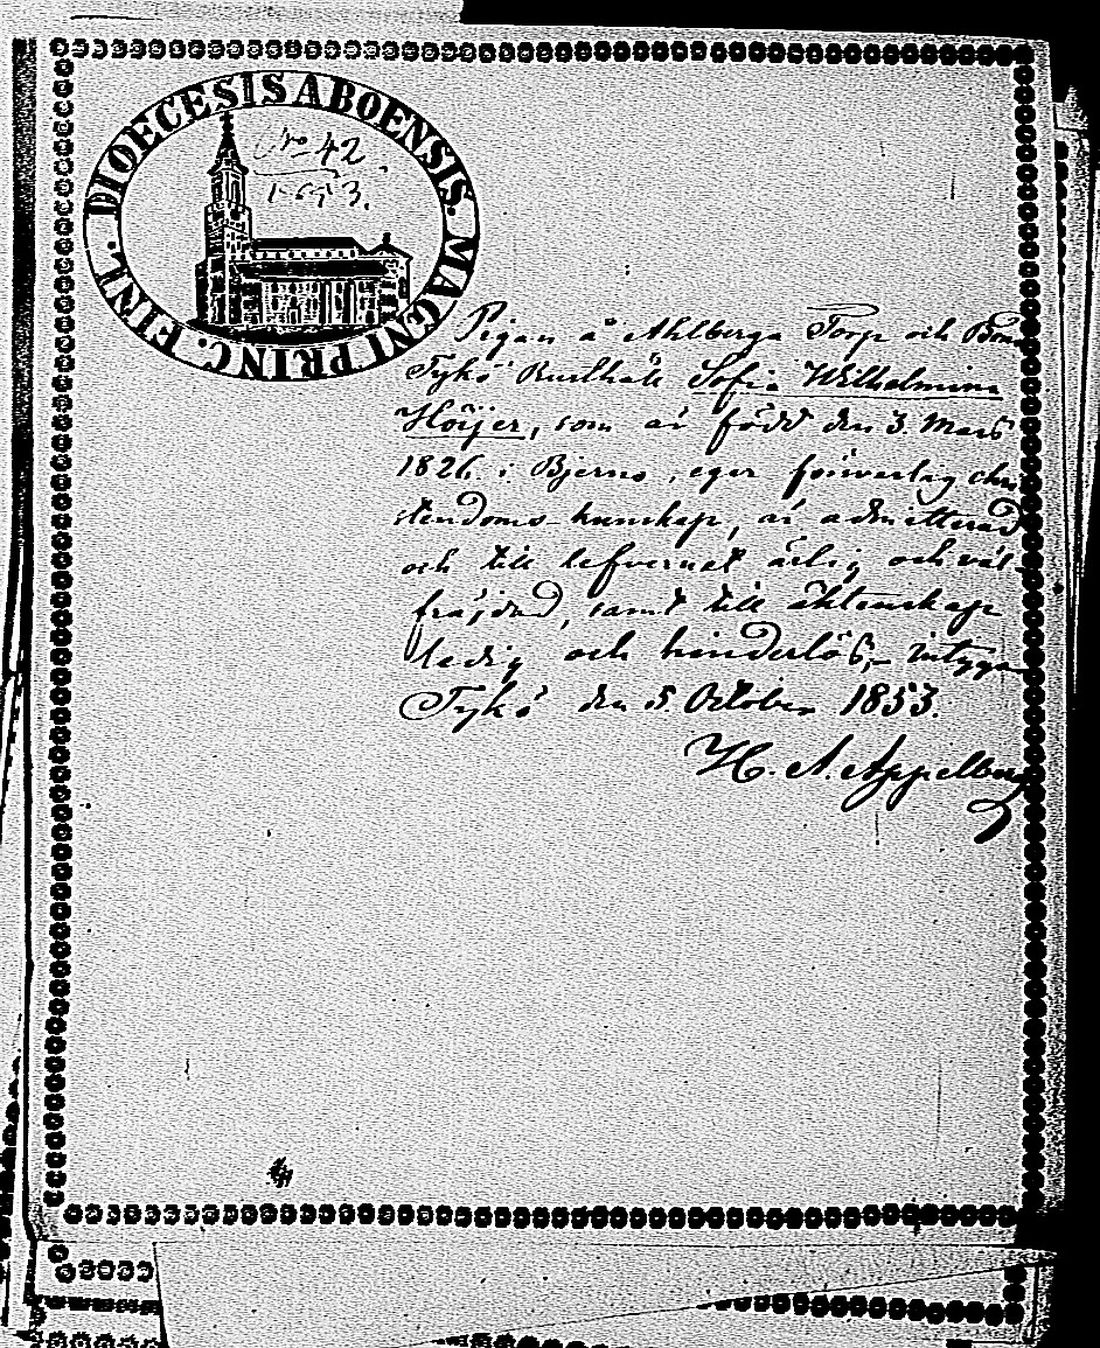 DIOECESIS ABOENSIS. MAGNI PRINC. FINL.
No 42
1853.
Pigan å Ahlberga Torp och
Tykö Sofia Wilhelmina
Höijer, som är född den 3. Mars
1826 i Bjerno, eger försvarlig chri
stendoms kunskap, är admitterad
och till lefvernet ärlig och väl-
fräjdad, samt till äktenskap
ledig och hinderlös;- intygar
Tykö den 5. October 1853.
H. A. Appelberg